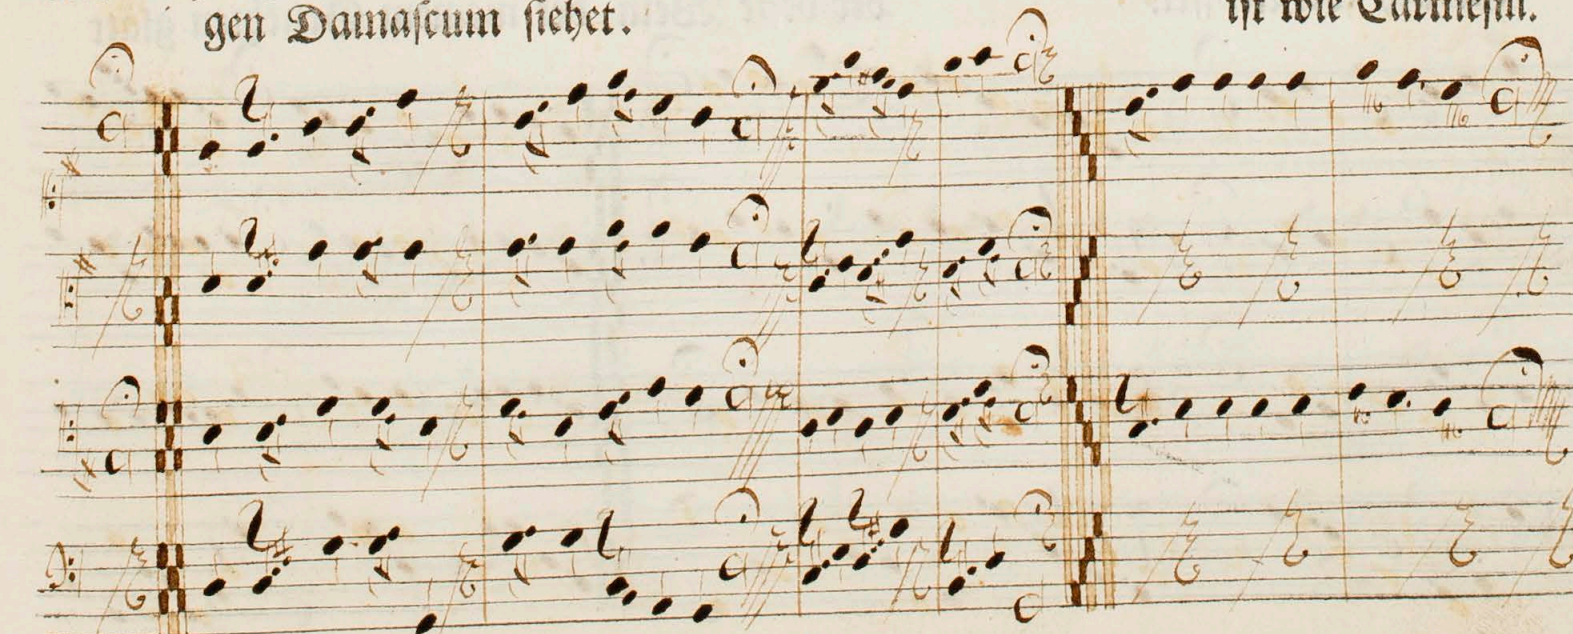 gen Damaſcum ſiehet.
iſt wie Carmeſin.